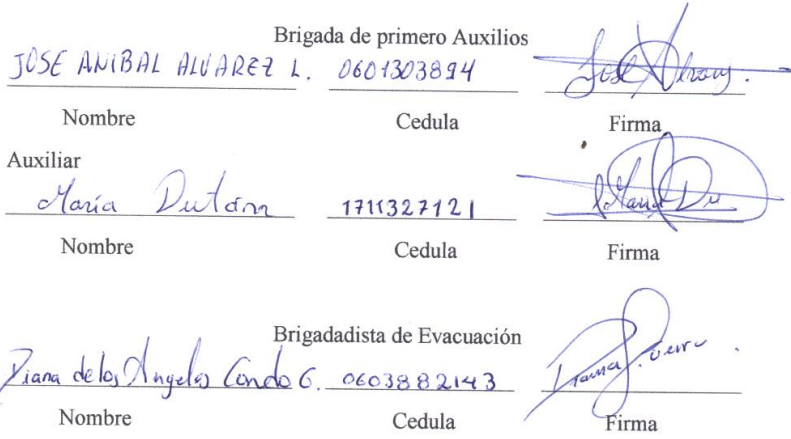 Brigada de primero Auxilios
JOSE ANIBAL ALVAREZ L. 0601303894 José Alvarez.
Nombre Cedula Firma
Auxiliar
María Dután 1711327121 María Du
Nombre Cedula Firma
Brigadadista de Evacuación
Diana de los Angeles Condo G. 0603882143 Diana
Nombre Cedula Firma